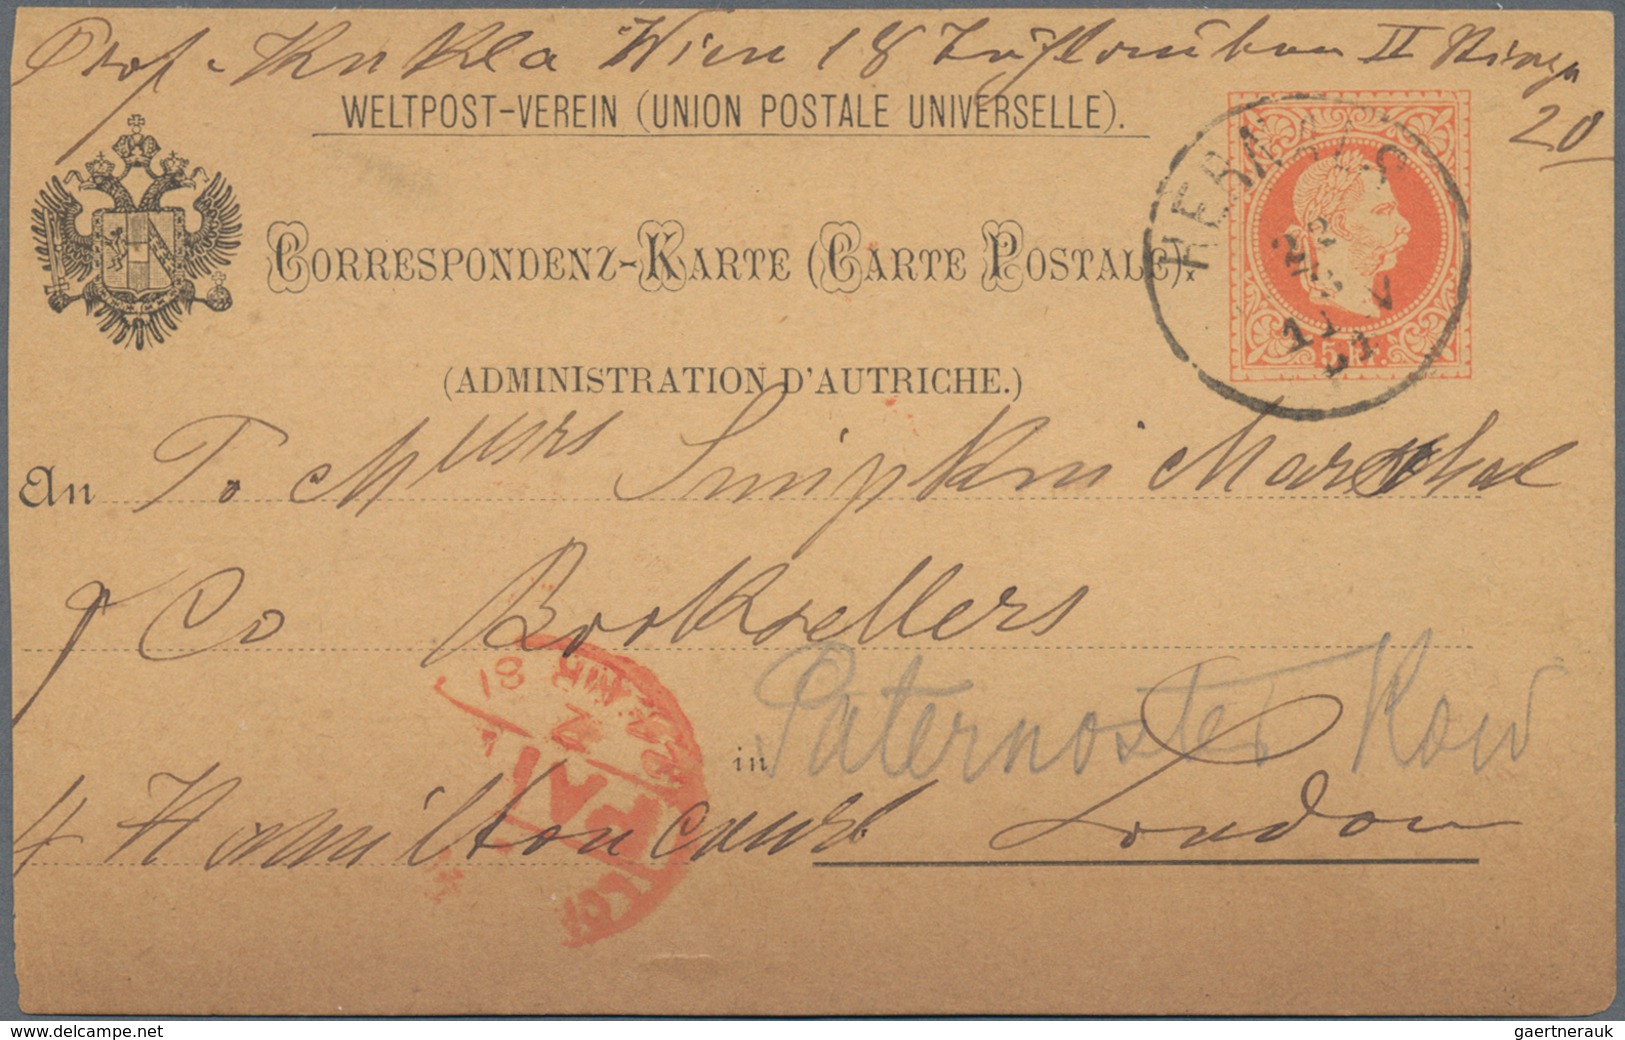 Prof. Kukla Wien 18 II
20
WELTPOST-VEREIN (UNION POSTALE UNIVERSELLE).
HERNALS
CORRESPONDENZ-KARTE (CARTE POSTALE).
5 kr.
(ADMINISTRATION D'AUTRICHE.)
An To Messrs Simpkin Marschal
& Co Booksellers
MR 81
in Paternoster Row
4 Hamilton court London
www.delcampe.net
gaertnerauk